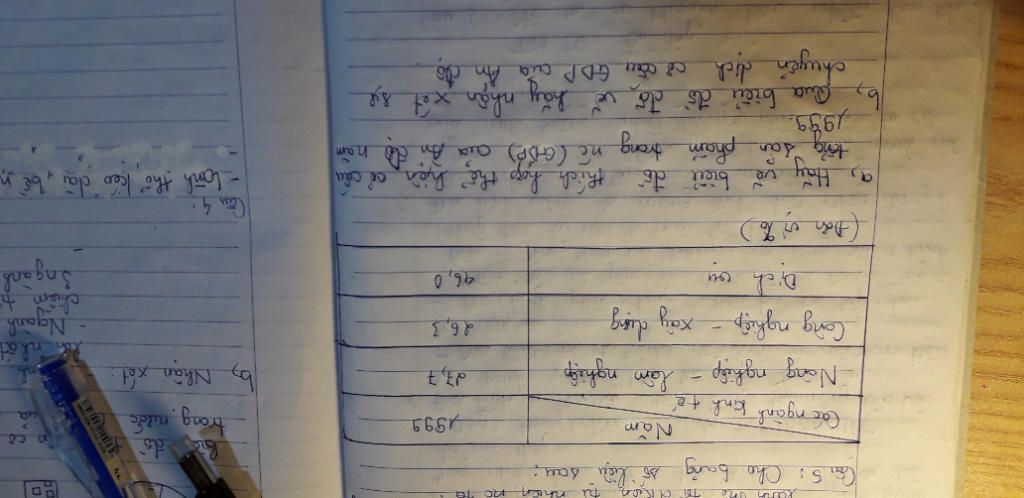 Câu 5: Cho bảng số liệu sau:
Năm
Các ngành kinh tế
1999
Nông nghiệp - lâm nghiệp
27,7
Công nghiệp - xây dựng
26,3
Dịch vụ
46,0
(Đơn vị %)
a, Hãy vẽ biểu đồ thích hợp thể hiện cơ cấu
tổng sản phẩm trong nc (GDP) của Ấn Độ năm
1999.
b, Qua biểu đồ đã vẽ hãy nhận xét sự
chuyển dịch cơ cấu GDP của Ấn Độ.
trong nước
b, Nhận xét:
- Ngành
chiếm
3 ngành
Câu 4:
- Lãnh thổ kéo dài, bề